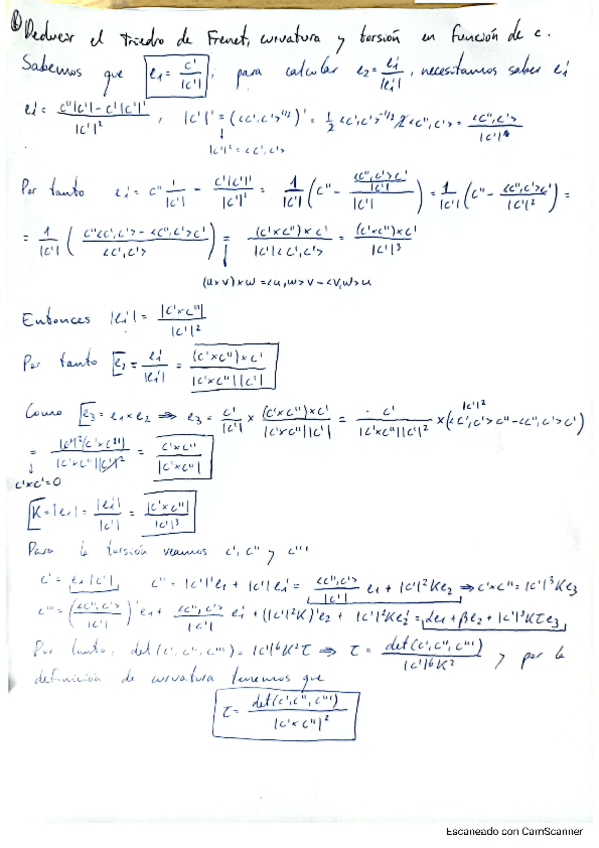 Deducir el triedro de Frenet, curvatura y torsión en función de c.
Sabemos que e₁ = c'/|c'|, para calcular e₂ = e₁'/|e₁'|, necesitamos saber e₁'
e₁' = (c''|c'| - c'|c'|')/|c'|², |c'|' = (<c',c'>^{1/2})' = 1/2 <c',c'>^{-1/2} 2<c'',c'> = <c'',c'>/|c'|
|c'|² = <c',c'>
Por tanto e₁' = c'' 1/|c'| - c'|c'|'/|c'|² = 1/|c'| (c'' - (<c'',c'>c'/|c'|)/|c'|) = 1/|c'| (c'' - <c'',c'>c'/|c'|²) =
= 1/|c'| ((c''<c',c'> - <c'',c'>c')/<c',c'>) = (c'×c'')×c'/(|c'|<c',c'>) = (c'×c'')×c'/|c'|³
(u×v)×w = <u,w>v - <v,w>u
Entonces |e₁'| = |c'×c''|/|c'|²
Por tanto e₂ = e₁'/|e₁'| = (c'×c'')×c'/(|c'×c''||c'|)
Como e₃ = e₁×e₂ ⇒ e₃ = c'/|c'| × (c'×c'')×c'/(|c'×c''||c'|) = c'/(|c'×c''||c'|²) × (<c',c'>c'' - <c'',c'>c')
|c'|²
= |c'|²(c'×c'')/(|c'×c''||c'|²) = c'×c''/|c'×c''|
c'×c'=0
K = |e₁'|/|c'| = |c'×c''|/|c'|³
Para la torsión veamos c', c'' y c'''
c' = e₁|c'| c'' = |c'|'e₁ + |c'|e₁' = <c'',c'>/|c'| e₁ + |c'|²Ke₂ ⇒ c'×c'' = |c'|³Ke₃
c''' = (<c'',c'>/|c'|)'e₁ + <c'',c'>/|c'| e₁' + (|c'|²K)'e₂ + |c'|²Ke₂' = αe₁ + βe₂ + |c'|³Kτe₃
Por tanto, det(c',c'',c''') = |c'|⁶K²τ ⇒ τ = det(c',c'',c''')/(|c'|⁶K²) y por la
definición de curvatura tenemos que
τ = det(c',c'',c''')/|c'×c''|²
Escaneado con CamScanner